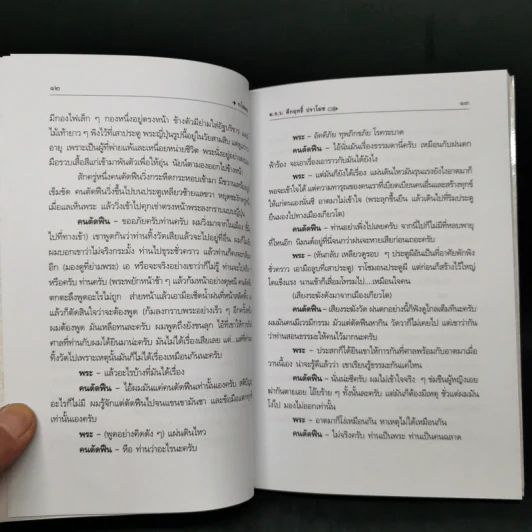 ๑๒
มีกองไฟเล็ก ๆ กองหนึ่งอยู่ตรงหน้า ข้างตัวมีย่ามใส่อัฐบริขาร
ไม้เท้ายาว ๆ พิงไว้ที่เสาประตู พระญี่ปุ่นรูปนี้อยู่ในวัยสามสิบ
อายุ เพราะเป็นผู้ที่พ่ายแพ้และเหนื่อยหน่ายชีวิต พระนั่งอยู่อย่าง
มือรวบเสื้อสีแก่เข้ามาพันตัวเพื่อให้อุ่น นัยน์ตามองออกไปข้างหน้า
สักครู่หนึ่งคนตัดฟืนวิ่งกระหืดกระหอบเข้ามา
เข้มขัด คนตัดฟืนวิ่งขึ้นไปบนประตูเหลียวซ้ายแลขวา
เมื่อแลเห็นพระ แล้ววิ่งเข้าไปคุกเข่าตรงหน้าพระลงกราบแบบญี่ปุ่น
คนตัดฟืน – ขออภัยครับท่านครับ ผมวิ่งมาจากในเมือง
ไปที่ทางเข้า) เขาพูดกันว่าท่านทิ้งวัดเสียแล้วจะไปอยู่ที่อื่น
ผมบอกเขาว่าไม่จริงกระมั้ง ท่านไปธุระชั่วคราว แล้วท่านก็คง
อีก (มองดูที่ย่ามพระ) เอ หรือจะจริงอย่างเขาว่าก็ไม่รู้
หรือครับ ท่านครับ (พระพยักหน้าช้า ๆ แล้วก้มหน้าอย่าง
ตกตะลึงพูดอะไรไม่ถูก ส่ายหน้าแล้วเอามือเช็ดน้ำฝนที่หน้า
แล้วก็ตัดสินใจว่าจะต้องพูด (ก้มลงกราบพระอย่างเร็ว ๆ อีก
ผมต้องพูด มันเหลือทนละครับ ผมพูดถึงยังขนลุก ไอ้ที่เขาให้การ
ศาลที่ท่านกับผมได้ยินมาน่ะครับ มันไม่ได้เรื่องเสียเลย แต่...แต่ที่ท่าน
ทิ้งวัดไปเพราะเหตุนั้นมันก็ไม่ได้เรื่องเหมือนกันนะครับ
พระ – แล้วอะไรบ้างที่มันได้เรื่อง
คนตัดฟืน – ไอ้ผมมันแค่คนตัดฟืนเท่านั้นเองครับ
อะไรก็ไม่มี ผมรู้จักแต่ตัดฟืนไปจนแขนขามันชา
เท่านั้นเองครับ
พระ – (พูดอย่างคิดดัง ๆ) แผ่นดินไหว
คนตัดฟืน – หือ ท่านว่าอะไรนะครับ
ม.ร.ว. คึกฤทธิ์ ปราโมช
๑๓
พระ – อัคคีภัย ทุพภิกขภัย โรคระบาด
คนตัดฟืน – ไอ้นั่นมันเรื่องธรรมดานี่ครับ เหมือนกับฝนตก
ฟ้าร้อง จะเอาเรื่องเอาราวกับมันได้ยังไง
พระ – แต่มันก็ยังได้เรื่อง แผ่นดินไหวมันรุนแรงยังไงอาตมาก็
พอจะเข้าใจได้ แต่ความทารุณของคนเราที่เบียดเบียนคนอื่นและสร้างทุกข์
ให้แก่กันน่ะซี อาตมาไม่เข้าใจ (พระลุกขึ้นยืน แล้วเดินไปที่ริมประตู
ยืนมองไปทางเมืองเกียวโต)
คนตัดฟืน – ท่านอย่าเพิ่งไปเลยครับ จากนี่ไปก็ไม่มีที่หลบพายุ
ที่ไหนอีก นิมนต์อยู่ที่นี่จนกว่าฝนจะหายเสียก่อนเถอะครับ
พระ – (หันกลับ เหลียวดูรอบ ๆ ประตูผีอันเป็นที่อาศัยพักพิง
ชั่วคราว เอามือลูบที่เสาประตู) ราโชมอนประตูผี แต่ก่อนก็สร้างไว้ใหญ่
โตแข็งแรง นานเข้าก็เสื่อมโทรมไป...เหมือนใจคน
(เสียงระฆังดังมาจากเมืองเกียวโต)
คนตัดฟืน – เสียงระฆังวัด ฝนตกอย่างนี้ก็ฟังดูไกลเต็มทีนะครับ
ผมมันคนมีเวรมีกรรม มัวแต่ตัดฟืนหากิน วัดวาก็ไม่เคยไป แต่เขาว่ากัน
ว่าท่านสอนธรรมะให้คนไว้มากนะครับ
พระ – ประสกก็ได้ยินเขาให้การกันที่ศาลพร้อมกับอาตมาเมื่อ
วานนี้เอง น่าจะรู้ดีแล้วว่า เขาเรียนรู้ธรรมะกันแค่ไหน
คนตัดฟืน – นั่นน่ะซีครับ ผมไม่เข้าใจจริง ๆ ข่มขืนผู้หญิงเอย
ฆ่ากันตายเอย โอ๊ยร้าย ๆ ทั้งนั้นละครับ แต่มันก็ต้องมีเหตุ ชั่วแต่ผมมัน
โง่ไป มองไม่ออกเท่านั้น
พระ – อาตมาก็โง่เหมือนกัน หาเหตุไม่ได้เหมือนกัน
คนตัดฟืน – ไม่จริงครับ ท่านเป็นพระ ท่านเป็นคนฉลาด